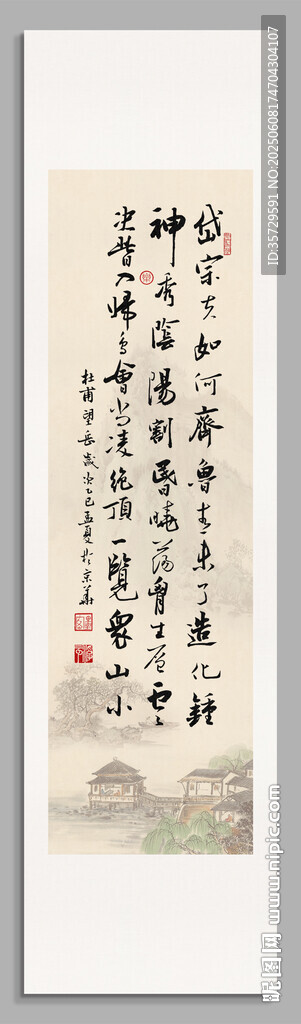 岱宗夫如何齊魯青未了造化鍾
神秀陰陽割昬曉蕩胷生层云
决眥入歸鳥會當凌絕頂一覽衆山小
杜甫望岳歲次乙巳孟夏於京華
ID:35729591 NO:20250608174704304107
昵图网 www.nipic.com